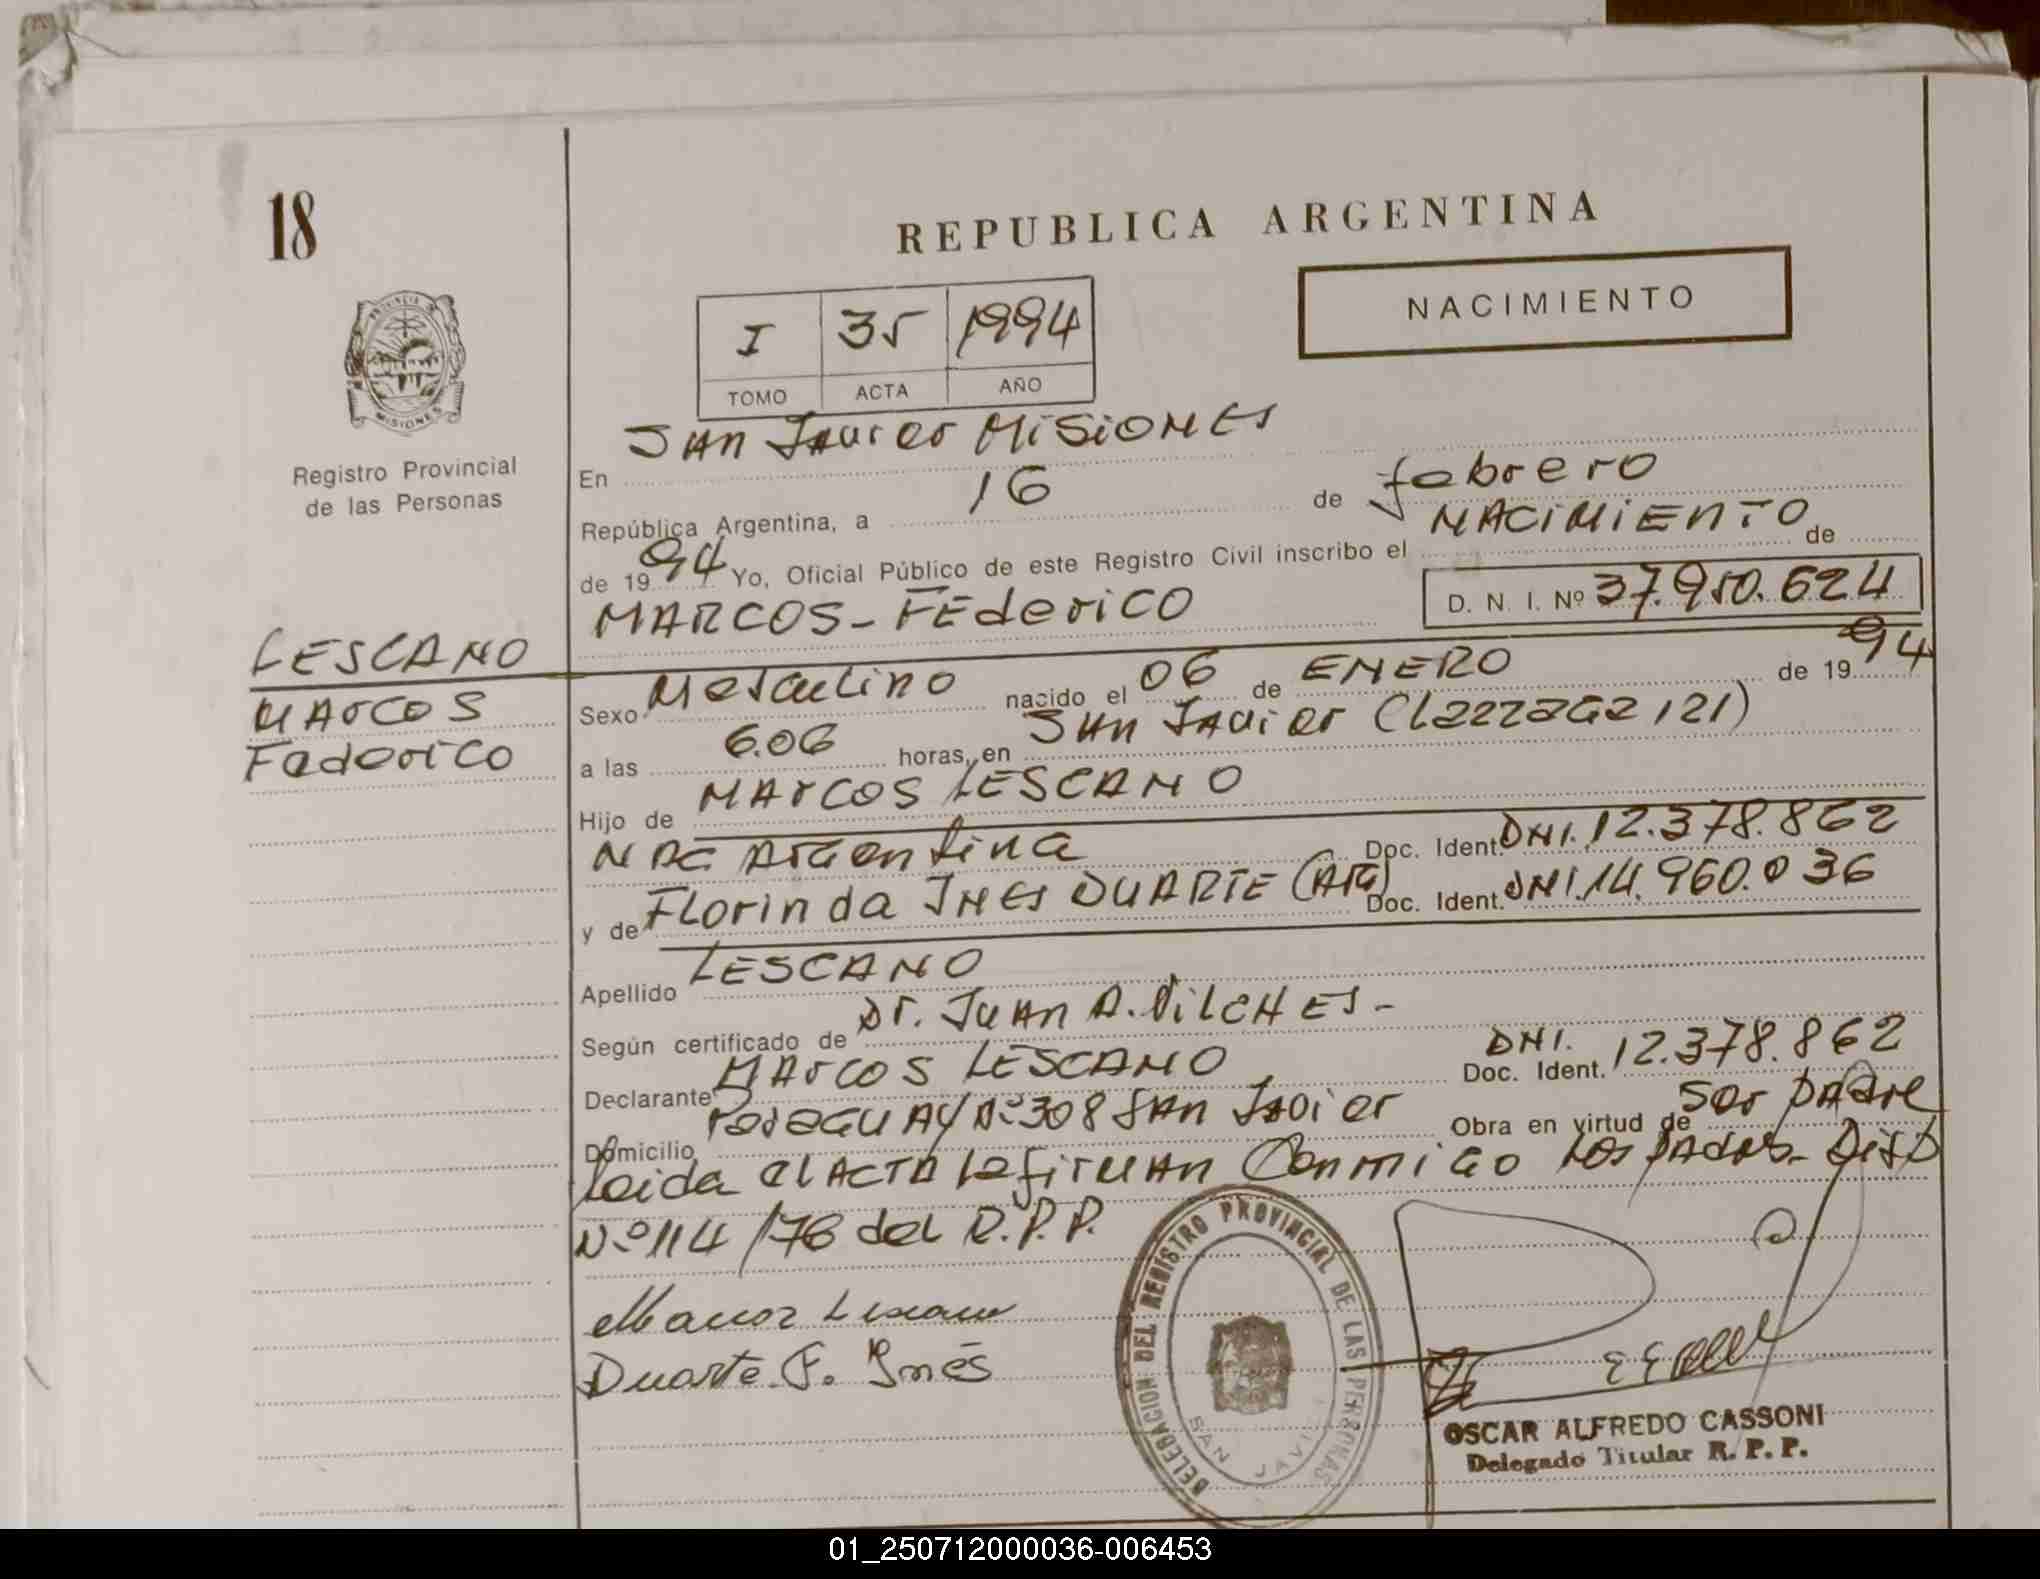 18
REPUBLICA ARGENTINA
NACIMIENTO
I 35 1994
TOMO ACTA AÑO
PROVINCIA DE MISIONES
Registro Provincial
de las Personas
En SAN JAVIER MISIONES
República Argentina, a 16 de febrero
de 1994 Yo, Oficial Público de este Registro Civil inscribo el NACIMIENTO de
MARCOS - FEderiCO D. N. I. Nº 37.950.624
LESCANO
MARCOS
Federico
Sexo Masculino nacido el 06 de ENERO de 1994
a las 6.06 horas, en SAN JAVIER (Lazzaga 121)
Hijo de MARCOS LESCANO
NAC ARGentina Doc. Ident. DNI. 12.378.862
y de FLorinda INES DUARTE (ARG) Doc. Ident. DNI. 14.960.036
Apellido LESCANO
Según certificado de Dr. JUAN A. VILCHES -
Declarante MARCOS LESCANO Doc. Ident. DNI. 12.378.862
Domicilio PARAGUAY Nº 308 SAN JAVIER Obra en virtud de Ser PADRE
Leida el ACTA La firMAN ConmiGo Los PADRES - Disp
Nº 114/76 del R.P.P.
Marcos Lescano
Duarte. F. Inés
DELEGACION DEL REGISTRO PROVINCIAL DE LAS PERSONAS
SAN JAVIER
OSCAR ALFREDO CASSONI
Delegado Titular R. P. P.
01_250712000036-006453